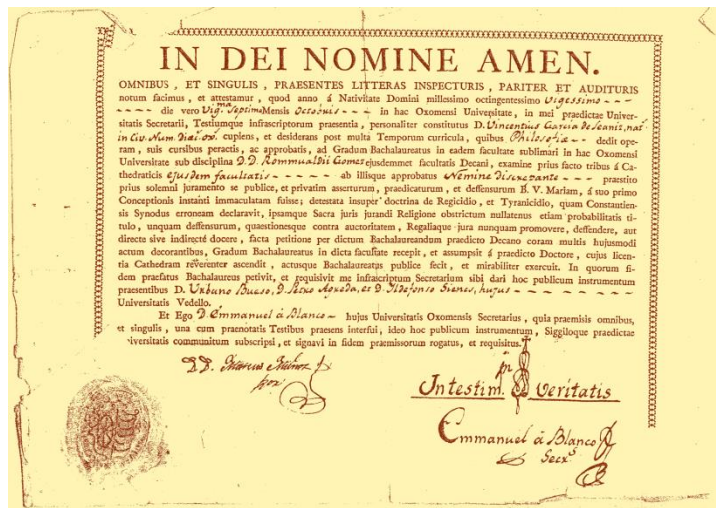 IN DEI NOMINE AMEN.
OMNIBUS , ET SINGULIS , PRAESENTES LITTERAS INSPECTURIS , PARITER ET AUDITURIS
notum facimus , et attestamur , quod anno á Nativitate Domini millessimo octingentessimo Vigessimo - - -
- - - - die vero Vig.ma Septimo Mensis Octobris - - - in hac Oxomensi Universitate, in mei praedictae Univer-
sitatis Secretarii, Testiumque infrascriptorum praesentia, personaliter constitutus D. Vincentius Garcia de
in Civ. cupiens, et desiderans post multa Temporum curricula, quibus Philosofiae - - dedit ope-
ram , suis cursibus peractis, ac approbatis , ad Gradum Bachalaureatus in eadem facultate sublimari in hac Oxomensi
Universitate sub disciplina D. D. Rommualdii Gomes ejusdemmet facultatis Decani, examine prius facto tribus á Ca-
thedraticis ejusdem facultatis - - - - - ab illisque approbatus Némine discrepante - - - praestito
prius solemni juramento se publice, et privatim asserturum, praedicaturum, et deffensurum B. V. Mariam, á suo primo
Conceptionis instanti immaculatam fuisse; detestata insuper doctrina de Regicidio, et Tyranicidio, quam Constantien-
sis Synodus erroneam declaravit, ipsamque Sacra juris jurandi Religione obstrictum nullatenus etiam probabilitatis ti-
tulo , unquam deffensurum, quaestionesque contra auctoritatem , Regaliaque jura nunquam promovere, deffendere, aut
directe sive indirecté docere, facta petitione per dictum Bachalaureandum praedicto Decano coram multis hujusmodi
actum decorantibus, Gradum Bachalaureatus in dicta facultate recepit, et assumpsit á praedicto Doctore, cujus licen-
tia Cathedram réverenter ascendit , actusque Bachalaureatus publice fecit, et mirabiliter exercuit. In quorum fi-
dem praefatus Bachalaureus petivit, et requisivit me infrascriptum Secretarium sibi dari hoc publicum instrumentum
praesentibus D. Urbano Bueso, D. Petro Agreda, et D. Ildefonso Sienes, hujus - - - - - - -
Universitatis Vedello.
Et Ego D. Emmanuel á Blanco - hujus Universitatis Oxomensis Secretarius , quia praemisis omnibus,
et singulis , una cum praenotatis Testibus praesens interfui, ideo hoc publicum instrumentum , Siggiloque praedictae
iversitatis communitum subscripsi , et signavi in fidem praemissorum rogatus, et requisitus.
D. D. Marcus Muñoz
In testim. veritatis
Emmanuel á Blanco
Secr.s